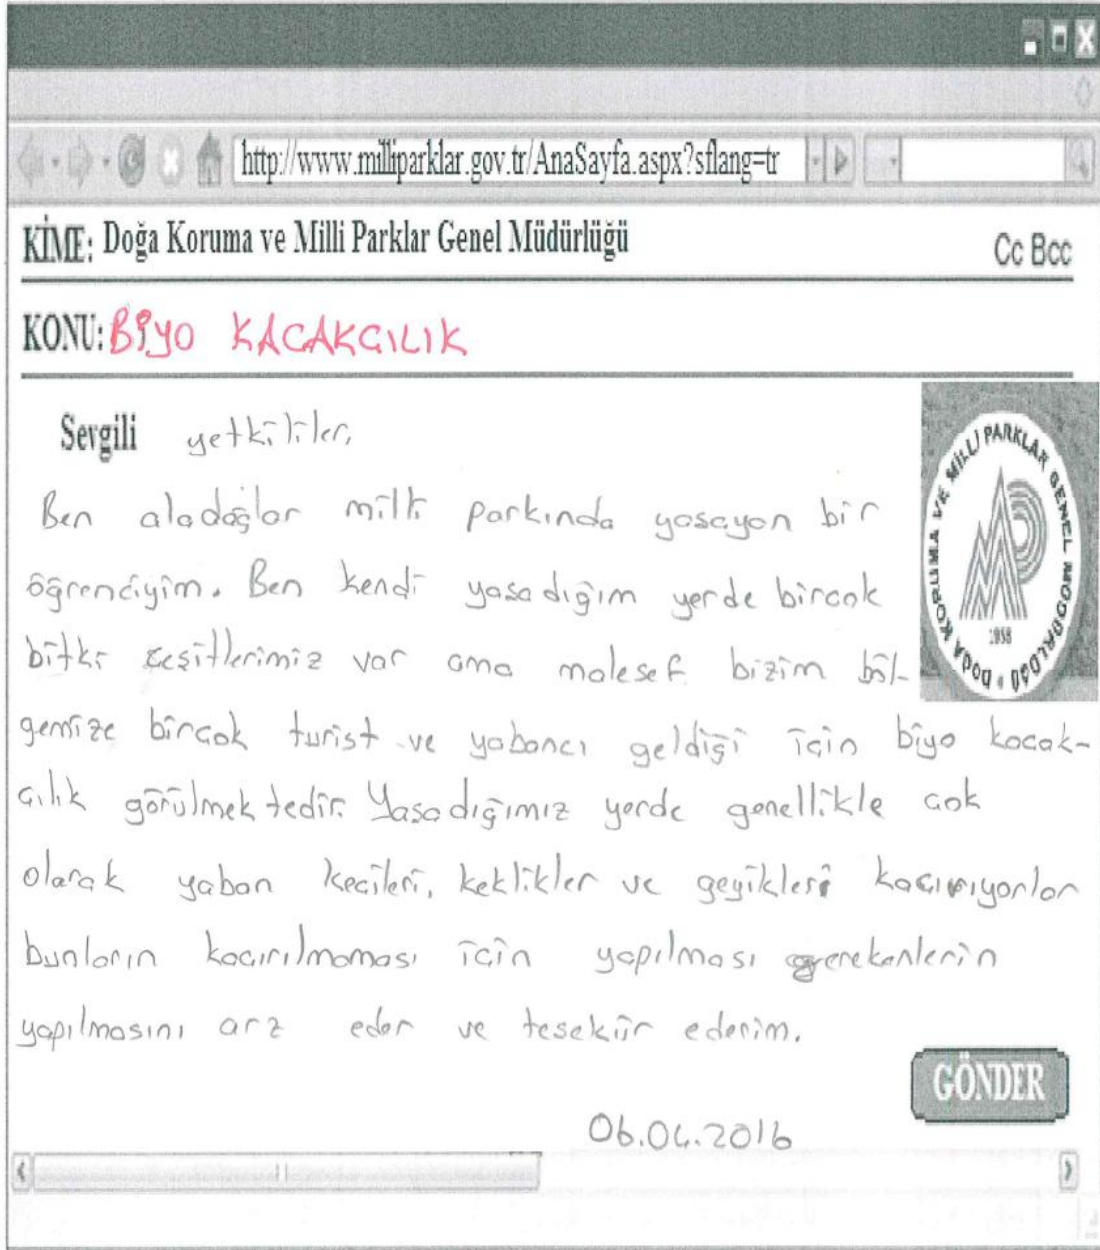 http://www.milliparklar.gov.tr/AnaSayfa.aspx?sflang=tr
KİME: Doğa Koruma ve Milli Parklar Genel Müdürlüğü Cc Bcc
KONU: BİYO KACAKCILIK
Sevgili yetkililer,
Ben aladağlar milli parkında yasayan bir
öğrenciyim. Ben kendi yasadığım yerde bircok
bitki çeşitlerimiz var ama malesef bizim böl-
gemize bircok turist ve yabancı geldiği için biyo kacak-
çılık görülmektedir. Yasadığımız yerde genellikle cok
olarak yaban kecileri, keklikler ve geyikleri kaçırıyorlar
bunların kacırılmaması için yapılması gerekenlerin
yapılmasını arz eder ve tesekür ederim.
GÖNDER
06.04.2016
DOĞA KORUMA VE MİLLİ PARKLAR GENEL MÜDÜRLÜĞÜ
1958